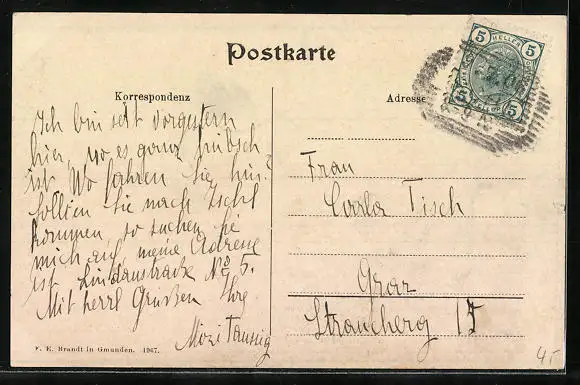 Postkarte
Korrespondenz
Adresse
5 HELLER 5
5 HELLER 5
Ich bin seit vorgestern
hier, wo es ganz hübsch
ist. Wo fahren Sie hin?
Sollten Sie nach Ischl
kommen, so suchen Sie
mich auf, meine Adresse
ist Lindaustraße No 5.
Mit herzl Grüßen Ihre
Mizi Taussig
Frau
Carla Tisch
Graz
15
F. E. Brandt in Gmunden. 1907.
45